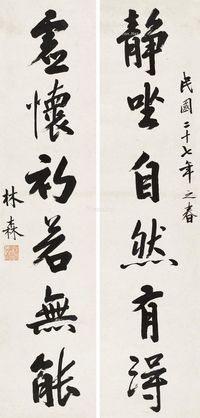 民國二十七年之春
靜坐自然有得
虛懷初若無能
林森